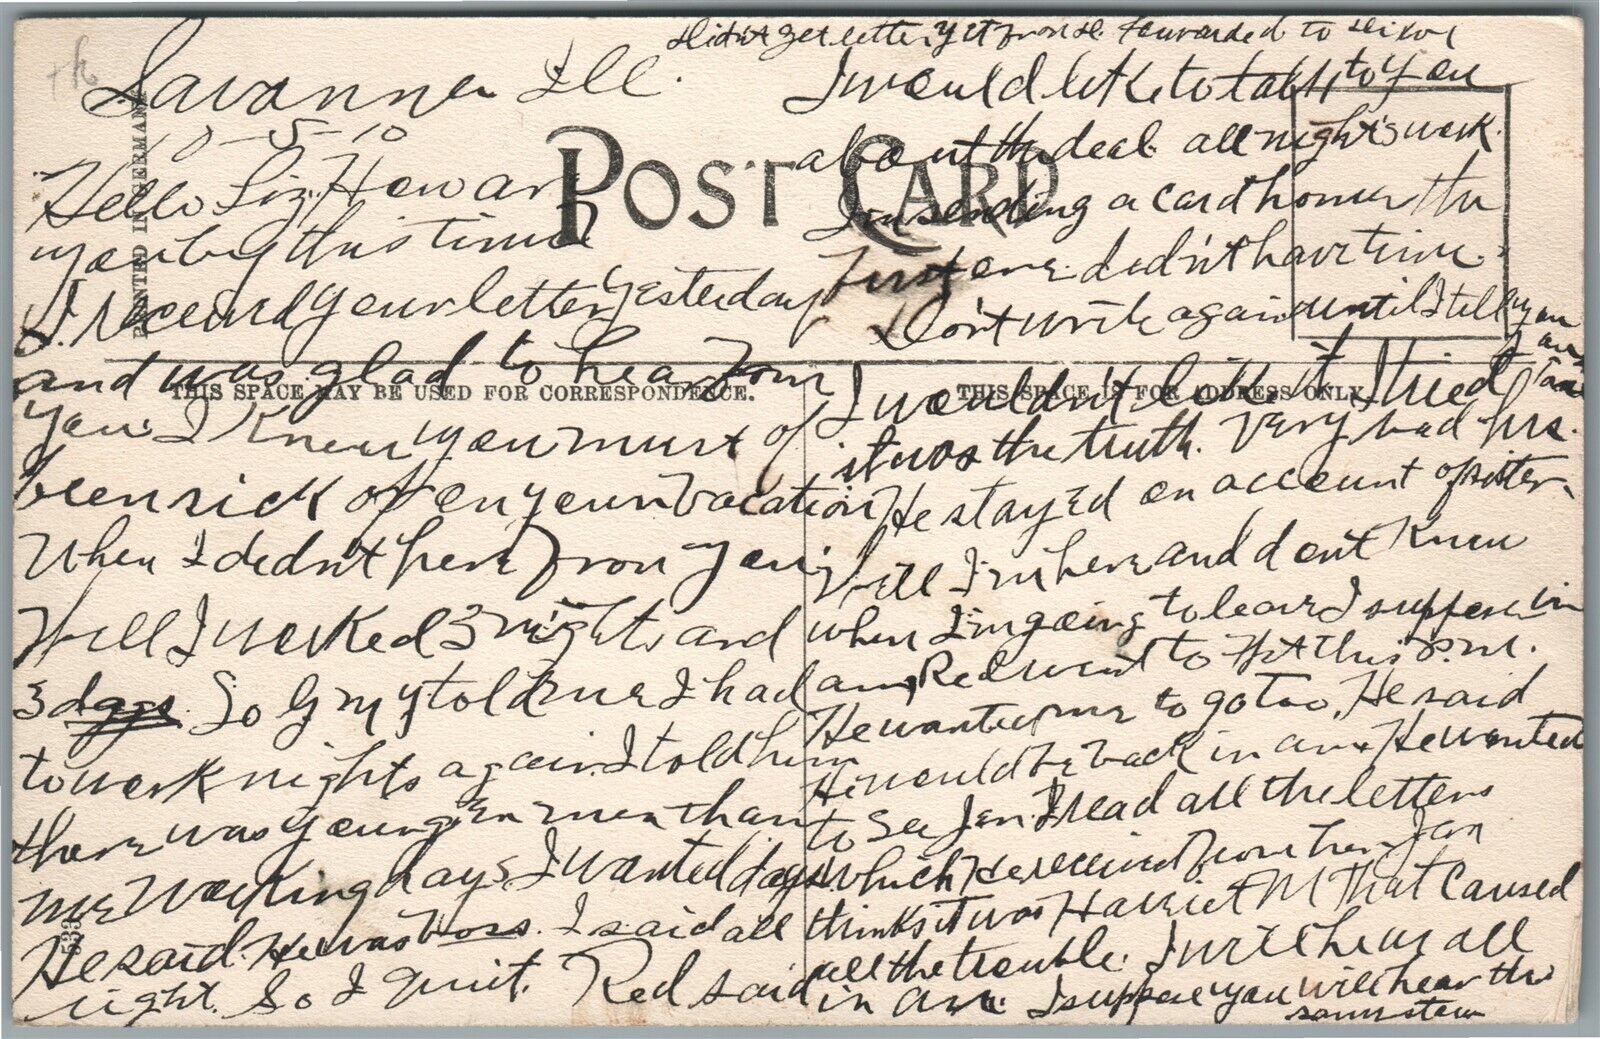 Savanna Ill.
10-5-10
Hello Liz. How are
you by this time
I received your letter yesterday
and was glad to hear from
you. I knew you must of
been sick or on your vacation
When I didn't here from you
Well I worked 3 nights and
3 days. So told me I had
to work nights again. I told him
there was younger men than
me working days I wanted days
He said. He was Boss. I said all
right. So I quit. Red said
Didn't get letter yet from forwarded to
I would like to talk to you
about the deal. all night's work.
Im sending a card home the
First one didn't have time.
Don't write again until I tell you
I wouldn't believe it I tried
it was the truth. Very bad
He stayed on account of sister
Well I'm here and dont know
when I'm going to leave I suppose in
Red went to this P.M.
He wanted me to go too. He said
He would be back in He wanted
to see Jen. I read all the letters
which He received from her. Jen
thinks it was Harriet M that caused
all the trouble. I will hear all
in I suppose you will hear the
same
POST CARD
THIS SPACE MAY BE USED FOR CORRESPONDENCE.
THIS SPACE IS FOR ADDRESS ONLY.
PRINTED IN GERMANY